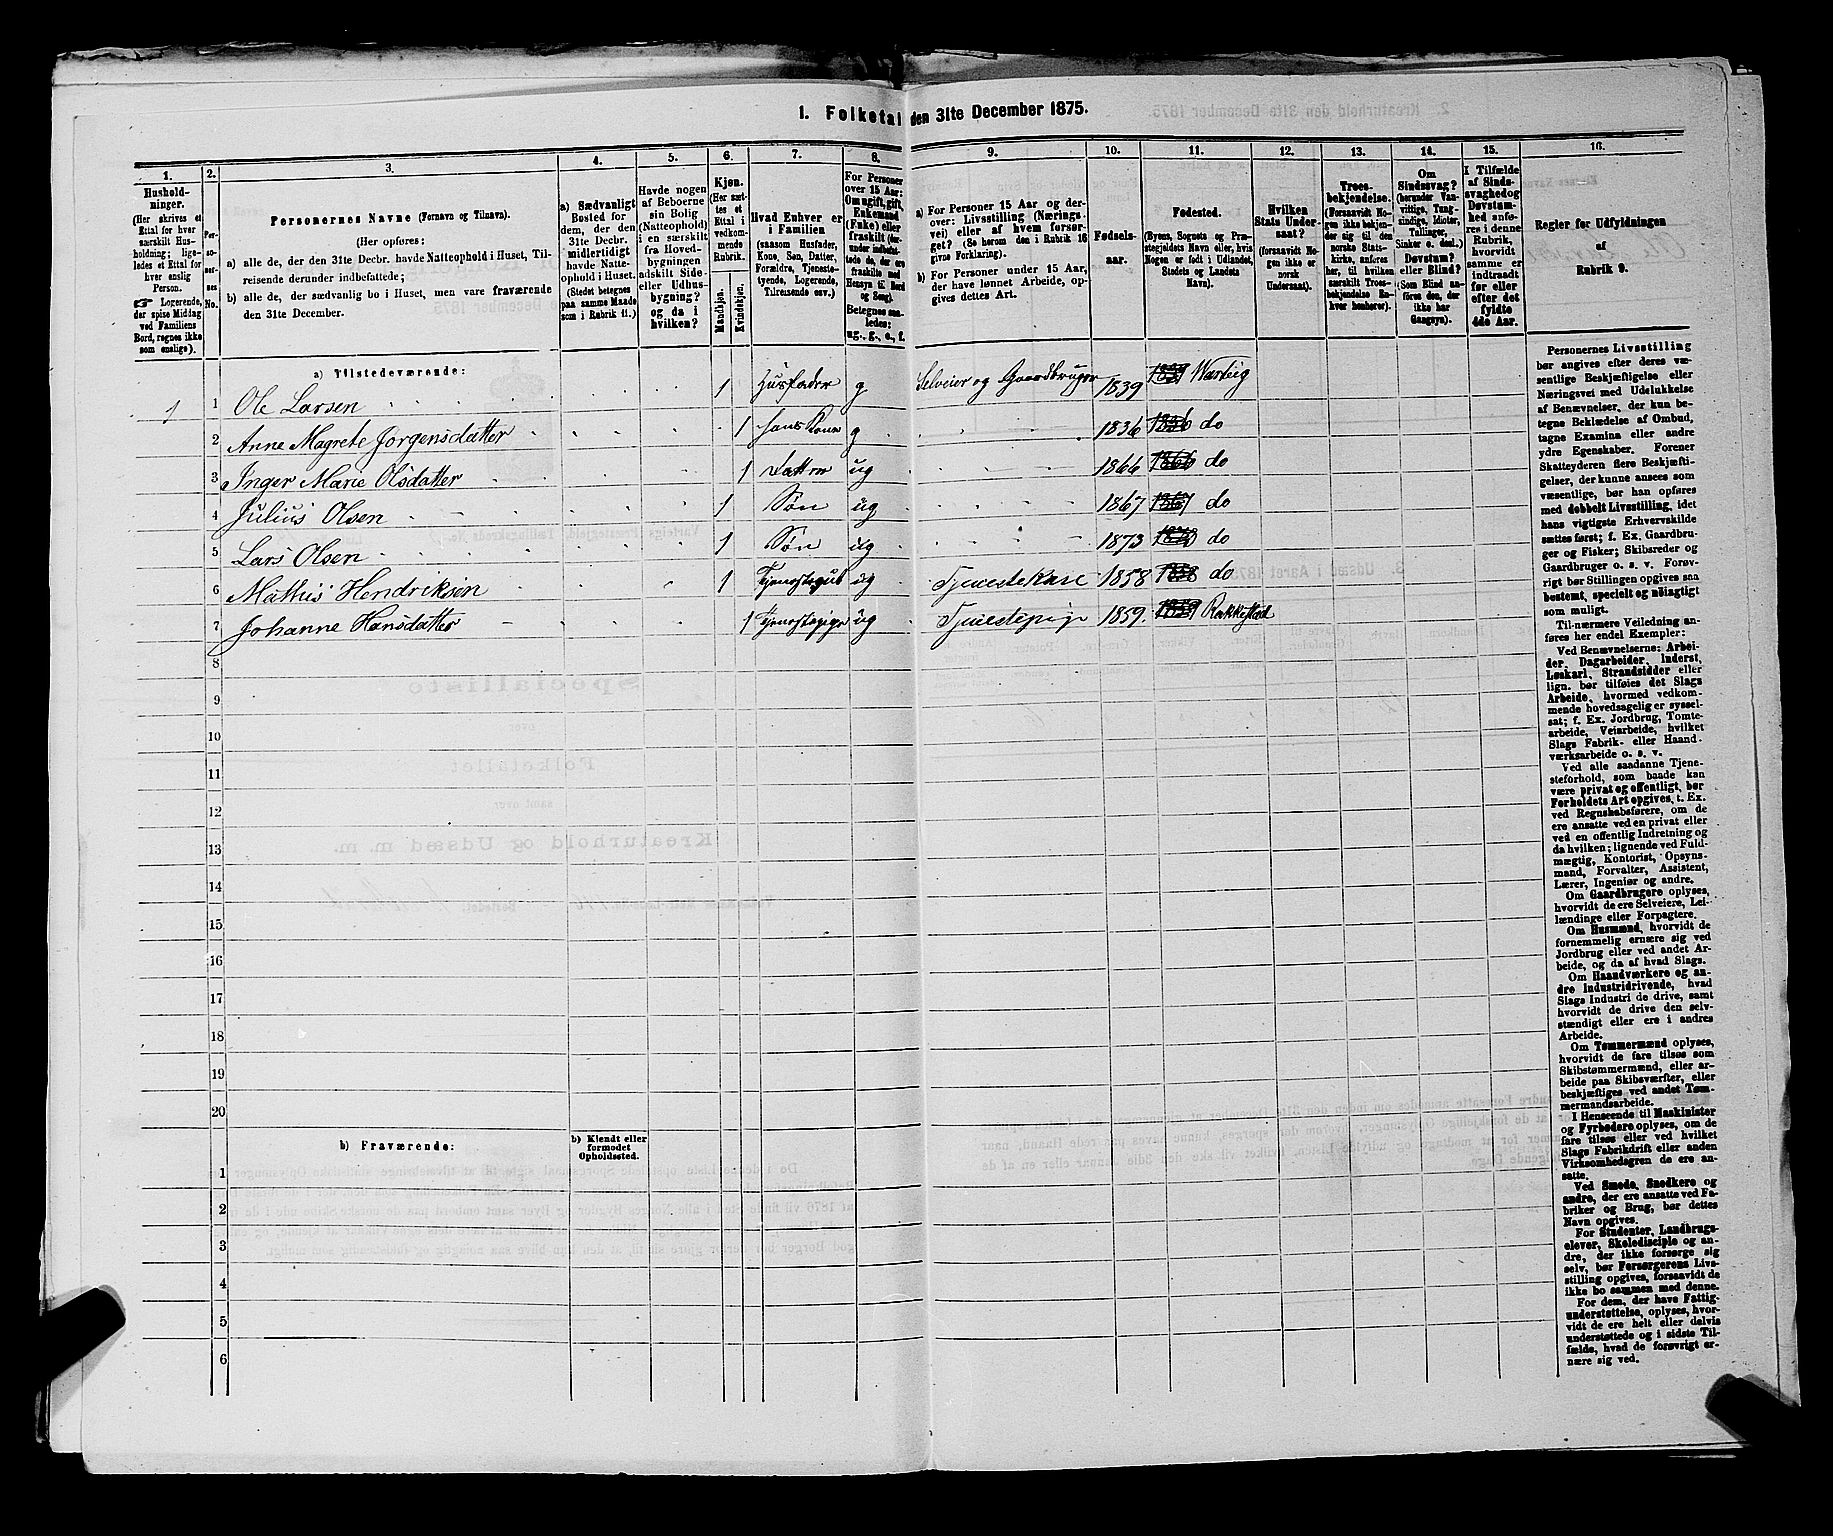 1. Folketal den 31te December 1875.
1. 2. 3. 4. 5. 6. 7. 8. 9. 10. 11. 12. 13. 14. 15. 16.
Hushold-
ninger.
(Her skrives et
Ettal for hver
særskilt Hus-
holdning; lige-
ledes et Ettal for
hver enslig
Person.
☞ Logerende,
der spise Middag
ved Familiens
Bord, regnes ikke
som enslige).
Per-
soner-
nes
No.
Personernes Navne (Fornavn og Tilnavn).
(Her opføres:
a) alle de, der den 31te Decbr. havde Natteophold i Huset, Til-
reisende derunder indbefattede;
b) alle de, der sædvanlig bo i Huset, men vare fraværende
den 31te December.
a) Sædvanligt
Bosted for
dem, der den
31te Decbr.
midlertidigt
havde Natte-
ophold i Huset.
(Stedet betegnes
paa samme Maade
som i Rubrik 11.)
Havde nogen
af Beboerne
sin Bolig
(Natteophold)
i en særskilt
fra Hoved-
bygningen
adskilt Side-
eller Udhus-
bygning?
og da i
hvilken?
Kjøn.
(Her sæt-
tes et
Ettal i
vedkom-
mende
Rubrik.)
Mandkjøn.
Kvindekjøn.
Hvad Enhver er
i Familien
(saasom Husfader,
Kone, Søn, Datter,
Forældre, Tjeneste-
tyende, Logerende,
Tilreisende osv.)
For Personer
over 15 Aar:
Om ugift, gift,
Enkemand
(Enke) eller
fraskilt (der-
under indbefat-
tede de, der ere
fraskilte med
Hensyn til Bord
og Seng).
Betegnes saa-
ledes:
ug., g., e., f.
a) For Personer 15 Aar og der-
over: Livsstilling (Nærings-
vei) eller af hvem forsør-
get? (Se herom den i Rubrik 16
givne Forklaring).
b) For Personer under 15 Aar,
der have lønnet Arbeide, op-
gives dettes Art.
Fødsels-
aar.
Fødested.
(Byens, Sognets og Præ-
stegjeldets Navn eller, hvis
Nogen er født i Udlandet,
Stedets og Landets
Navn).
Hvilken
Stats Under-
saat?
(forsaavidt No-
gen ikke er
norsk
Undersaat).
Troes-
bekjendelse.
(Forsaavidt No-
gen ikke bekjen-
der sig til den
norske Stats-
kirke, anføres
her, til hvilken
særskilt Troes-
bekjendelse En-
hver henhører).
Om
Sindssvag?
(herunder Van-
vittige, Tung-
sindige, Idioter,
Tullinger,
Sinker o. desl.)
Døvstum?
eller Blind?
(Som Blind an-
føres den, der
ikke har
Gangsyn).
I Tilfælde
af Sinds-
svaghed og
Døvstum-
hed anfø-
res i denne
Rubrik,
hvorvidt
samme er
indtraadt
før eller
efter det
fyldte
4de Aar.
Regler for Udfyldningen
af
Rubrik 9.
a) Tilstedeværende:
1 1 Ole Larsen 1 Husfader g Selveier og Gaardbruger 1839 1839 Warteig
2 Anne Magrete Jørgensdatter 1 hans Kone g 1836 1836 do
3 Inger Marie Olsdatter 1 Datter ug 1866 1866 do
4 Julius Olsen 1 Søn ug 1867 1867 do
5 Lars Olsen 1 Søn ug 1873 1873 do
6 Mathis Hendriksen 1 Tjenestegut ug Tjenestekarl 1858 1858 do
7 Johanne Hansdatter 1 Tjenestepige ug Tjenestepige 1859. 1859 Rakkestad
8
9
10
11
12
13
14
15
16
17
18
19
20
b) Fraværende:
b) Kjendt eller
formodet
Opholdssted.
1
2
3
4
5
6
Personernes Livsstilling
bør angives efter deres væ-
sentlige Beskjæftigelse eller
Næringsvei med Udelukkelse
af Benævnelser, der kun be-
tegne Beklædelse af Ombud,
tagne Examina eller andre
ydre Egenskaber. Forener
Skatteyderen flere Beskjæfti-
gelser, der kunne ansees som
væsentlige, bør han opføres
med dobbelt Livsstilling, idet
hans vigtigste Erhvervskilde
sættes først; f. Ex. Gaardbru-
ger og Fisker; Skibsreder og
Gaardbruger o. s. v. Forøv-
rigt bør Stillingen opgives saa
bestemt, specielt og nøiagtigt
som muligt.
Til nærmere Veiledning an-
føres her endel Exempler:
Ved Benævnelserne: Arbei-
der, Dagarbeider, Inderst,
Løskarl, Strandsidder eller
lign. bør tilføies det Slags
Arbeide, hvormed vedkom-
mende hovedsagelig er syssel-
sat; f. Ex. Jordbrug, Tomte-
arbeide, Veiarbeide, hvilket
Slags Fabrik- eller Haand-
værksarbeide o. s. v.
Ved alle saadanne Tjene-
steforhold, som baade kan
være privat og offentligt, bør
Forholdets Art opgives, t. Ex.
ved Regnskabsførere, om de
ere ansatte ved en privat eller
ved en offentlig Indretning og
da hvilken; lignende ved Fuld-
mægtig, Kontorist, Opsyns-
mand, Forvalter, Assistent,
Lærer, Ingeniør og andre.
Om Gaardbrugere oplyses,
hvorvidt de ere Selveiere, Lei-
lændinge eller Forpagtere.
Om Husmænd, hvorvidt de
fornemmelig ernære sig ved
Jordbrug eller ved andet Ar-
beide, og da af hvad Slags.
Om Haandværkere og an-
dre Industridrivende, hvad
Slags Industri de drive, samt
hvorvidt de drive den selv-
stændigt eller ere i andres
Arbeide.
Om Tømmermænd oplyses,
hvorvidt de fare tilsøs som
Skibstømmermænd, eller ar-
beide paa Skibsværfter, eller
beskjæftiges ved andet Tøm-
mermandsarbeide.
I Henseende til Maskinister
og Fyrbødere oplyses, om de
fare tilsøs eller ved hvilket
Slags Fabrikdrift eller anden
Virksomhedsgren de ere an-
satte.
Ved Smede, Snedkere og
andre, der ere ansatte ved Fa-
briker og Brug, bør dettes
Navn opgives.
For Studenter, Landbrugs-
elever, Skoledisciple og an-
dre, der ikke forsørge sig
selv, bør Forsørgerens Livs-
stilling opgives, forsaavidt de
ikke bo sammen med denne.
For dem, der have Fattig-
understøttelse, oplyses, hvor-
vidt de ere helt eller delvis
understøttede og i sidste Til-
fælde, hvad de forøvrigt er-
nære sig ved.